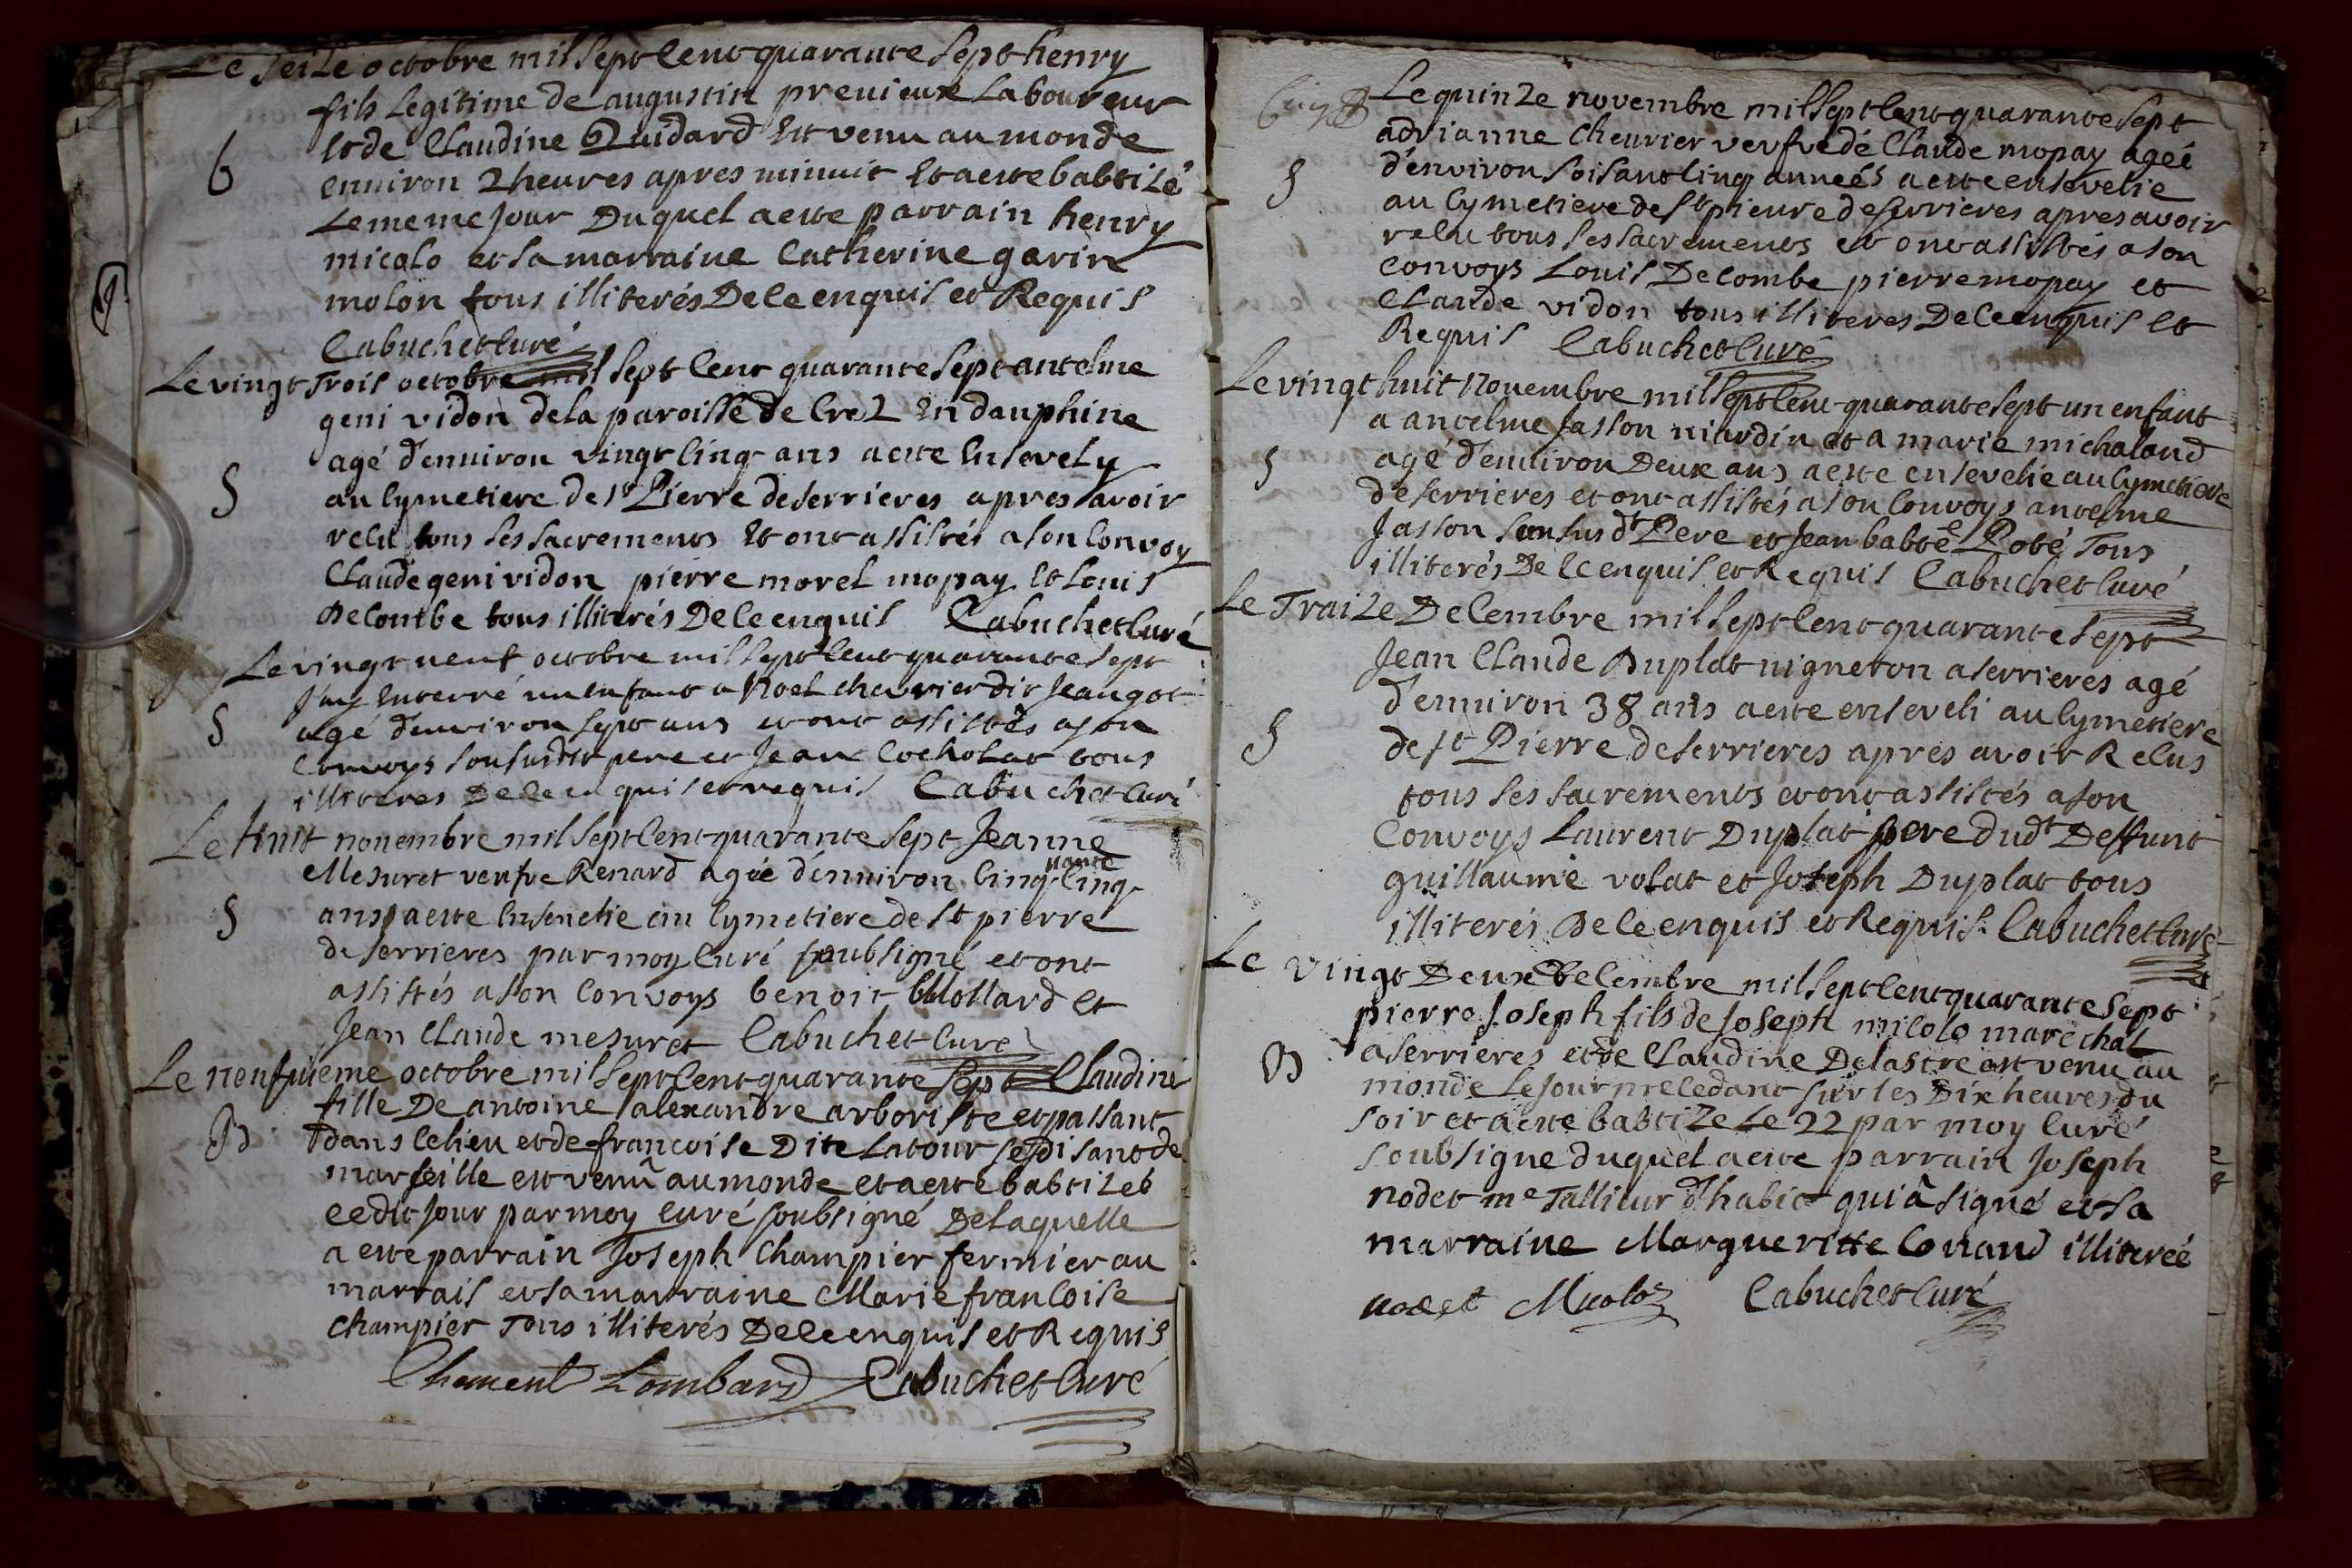 Le seize octobre mil sept cent quarante sept henry
fils legitime de augustin prenieux laboureur
et de Claudine Quidard est venu au monde
b
environ 2 heures apres minuit et a este babtizé
le meme jour Duquel a este parrain henry
micolo et sa marraine Catherine gavin
molon tous illiterés De ce enquis et Requis
Cabuchet curé
Le vingt Trois octobre mil sept cent quarante sept antelme
geni vidon de la paroisse de Crez en dauphine
agé d'environ vingt cinq ans a este ensevely
S
au Cymetiere de st Pierre de serrieres apres avoir
recu tous ses sacrements et ont assistés a son Convoy
Claude geni vidon pierre morel mopay et Louis
Decombe tous illiterés De ce enquis Cabuchet curé
Le vingt neuf octobre mil sept cent quarante sept
J'ay enterré un enfant a Noel chevrier dit Jeangot
S
agé d'environ sept ans et ont assistés a son
Convoys son susdit pere et Jean Cocholat tous
illiteres De ce enquis et requis Cabuchet curé
Le huit novembre mil sept cent quarante sept Jeanne
Mesuret veufve Renard agée d'environ cinquante cinq
S
ans a este ensevelie au Cymetiere de st pierre
de serrieres par moy curé soubsigné et ont
assistés a son Convoys benoit Mollard et
Jean Claude mesuret Cabuchet curé
Le neufvieme octobre mil sept cent quarante sept Claudine
fille De antoine alexandre arboriste et passant
B
dans ce lieu et de francoise Dite Latour se disant de
marseille est venü au monde et a este babtizeé
ce dit jour par moy curé soubsigné De laquelle
a este parrain Joseph Champier fermier au
marrais et sa marraine Marie francoise
Champier Tous illiterés De ce enquis et Requis
Lombard Cabuchet curé
Le quinze novembre mil sept cent quarante sept
adrianne Chevrier veufve dé Claude mopay ageé
S
d'environ soisant cinq anneés a este ensevelie
au Cymetiere de st pierre de serrieres apres avoir
recu tous ses sacrements et ont assistés a son
convoys Louis Decombe pierre mopay et
Claude vidon tous illiteres De ce enquis et
Requis Cabuchet curé
Le vingt huit Novembre mil sept cent quarante sept un enfant
a antelme Jasson niardin et a marie michaland
S
agé d'environ Deux ans a este ensevelie au Cymetiere
de serrieres et ont assistés a son Convoys antelme
Jasson son susdt Pere et Jean babte Poté Tous
illiterés De ce enquis et Requis Cabuchet curé
Le Traize Decembre mil sept cent quarante sept
Jean Claude Duplat vigneron a serrieres agé
d'environ 38 ans a este enseveli au Cymetiere
S
de st Pierre de serrieres apres avoir Recus
tous ses sacrements et ont assistés a son
Convoys Laurent Duplat pere dudt Deffunt
guillaume volat et Joseph Duplat tous
illiterés De ce enquis et Requis. Cabuchet curé
Le vingt Deux Decembre mil sept cent quarante sept
pierre Joseph fils de Joseph micolo marechal
B
a serrieres et de Claudine Delastre est venu au
monde le jour precedant sur les Dix heures du
soir et a este babtize Le 22 par moy curé
soubsigne duquel a este parrain Joseph
nodet me Tallieur d'habit qui â signé et sa
marraine Margueritte Conand illitereé
nodet Micoloz Cabuchet curé